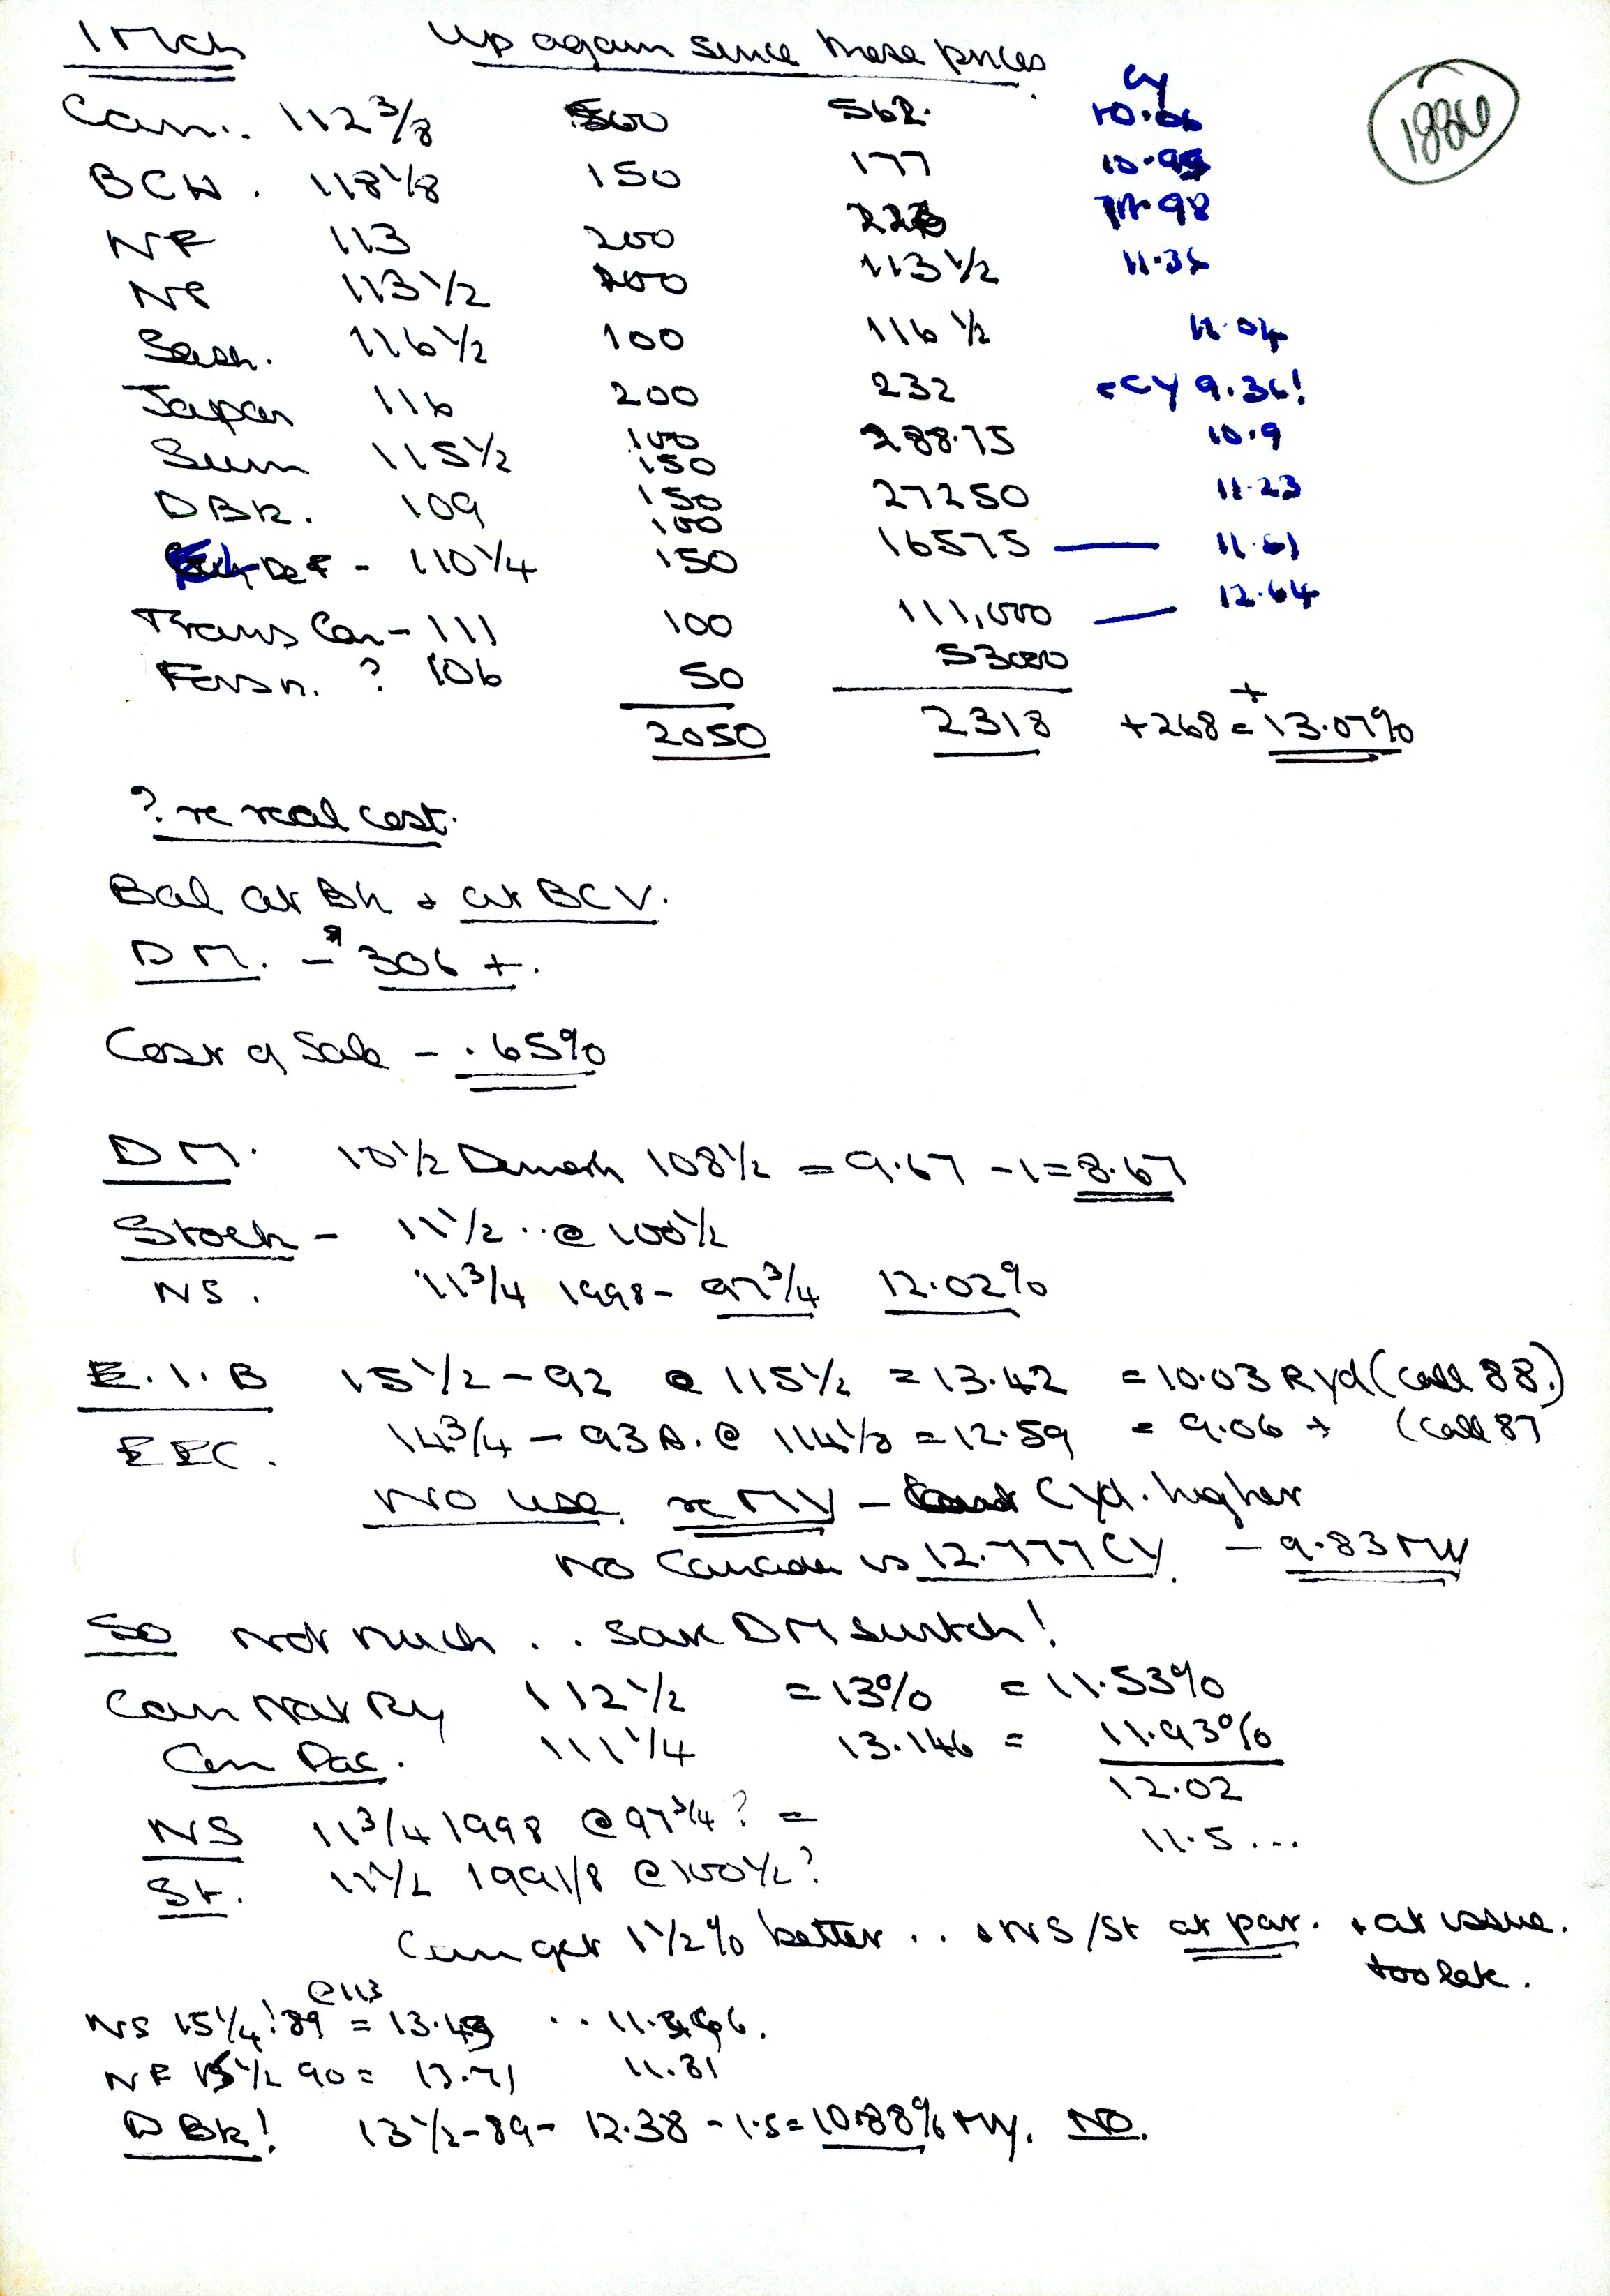 1 Mch up again since these prices
1986
Cy
Can.. 112 3/8 500 562. 10.06
BCH. 118 1/8 150 177 10.95
NF 113 200 226 11.98
NS 113 1/2 100 113 1/2 11.36
Sask. 116 1/2 100 116 1/2 11.04
Japan 116 200 232 = CY 9.36!
Sum 115 1/2 100 288.75 10.9
150
DBk. 109 150 27250 11.23
100
Def - 110 1/4 150 16575 — 11.61
Trans Can - 111 100 111,000 — 12.64
Farsn. ? 106 50 53000
2050 2318 +268 = + 13.07%
? re real cost.
Bal at Bk + at BCV.
DM. - 306 +.
Cost of Sale - .65%
DM. 10 1/2 Denmark 108 1/2 = 9.67 - 1 = 8.67
Stock - 11 1/2 .. @ 100 1/2
NS. 11 3/4 1998 - 97 3/4 12.02%
E.I.B 15 1/2 - 92 @ 115 1/2 = 13.42 = 10.03 Ryd (call 88.)
EEC. 14 3/4 - 93 A. @ 114 1/8 = 12.59 = 9.06 + (call 87
No use. re MY - Cyd. higher
No Canadian is 12.777 CY. - 9.83 MY
So not much .. save DM switch!
Can Nat Ry 112 1/2 = 13% = 11.53%
Can Pac. 111 1/4 13.146 = 11.93%
12.02
NS 11 3/4 1998 @ 97 3/4? =
11.5...
St. 11 1/2 1991/8 @ 100 1/2?
Can get 1 1/2% better .. + NS/St at par. + at issue.
too late.
@ 113
NS 15 1/4! 89 = 13.49 .. 11.366.
NF 15 1/2 90 = 13.71 11.81
D Bk! 13 1/2 - 89 - 12.38 - 1.5 = 10.88% MY. NO.